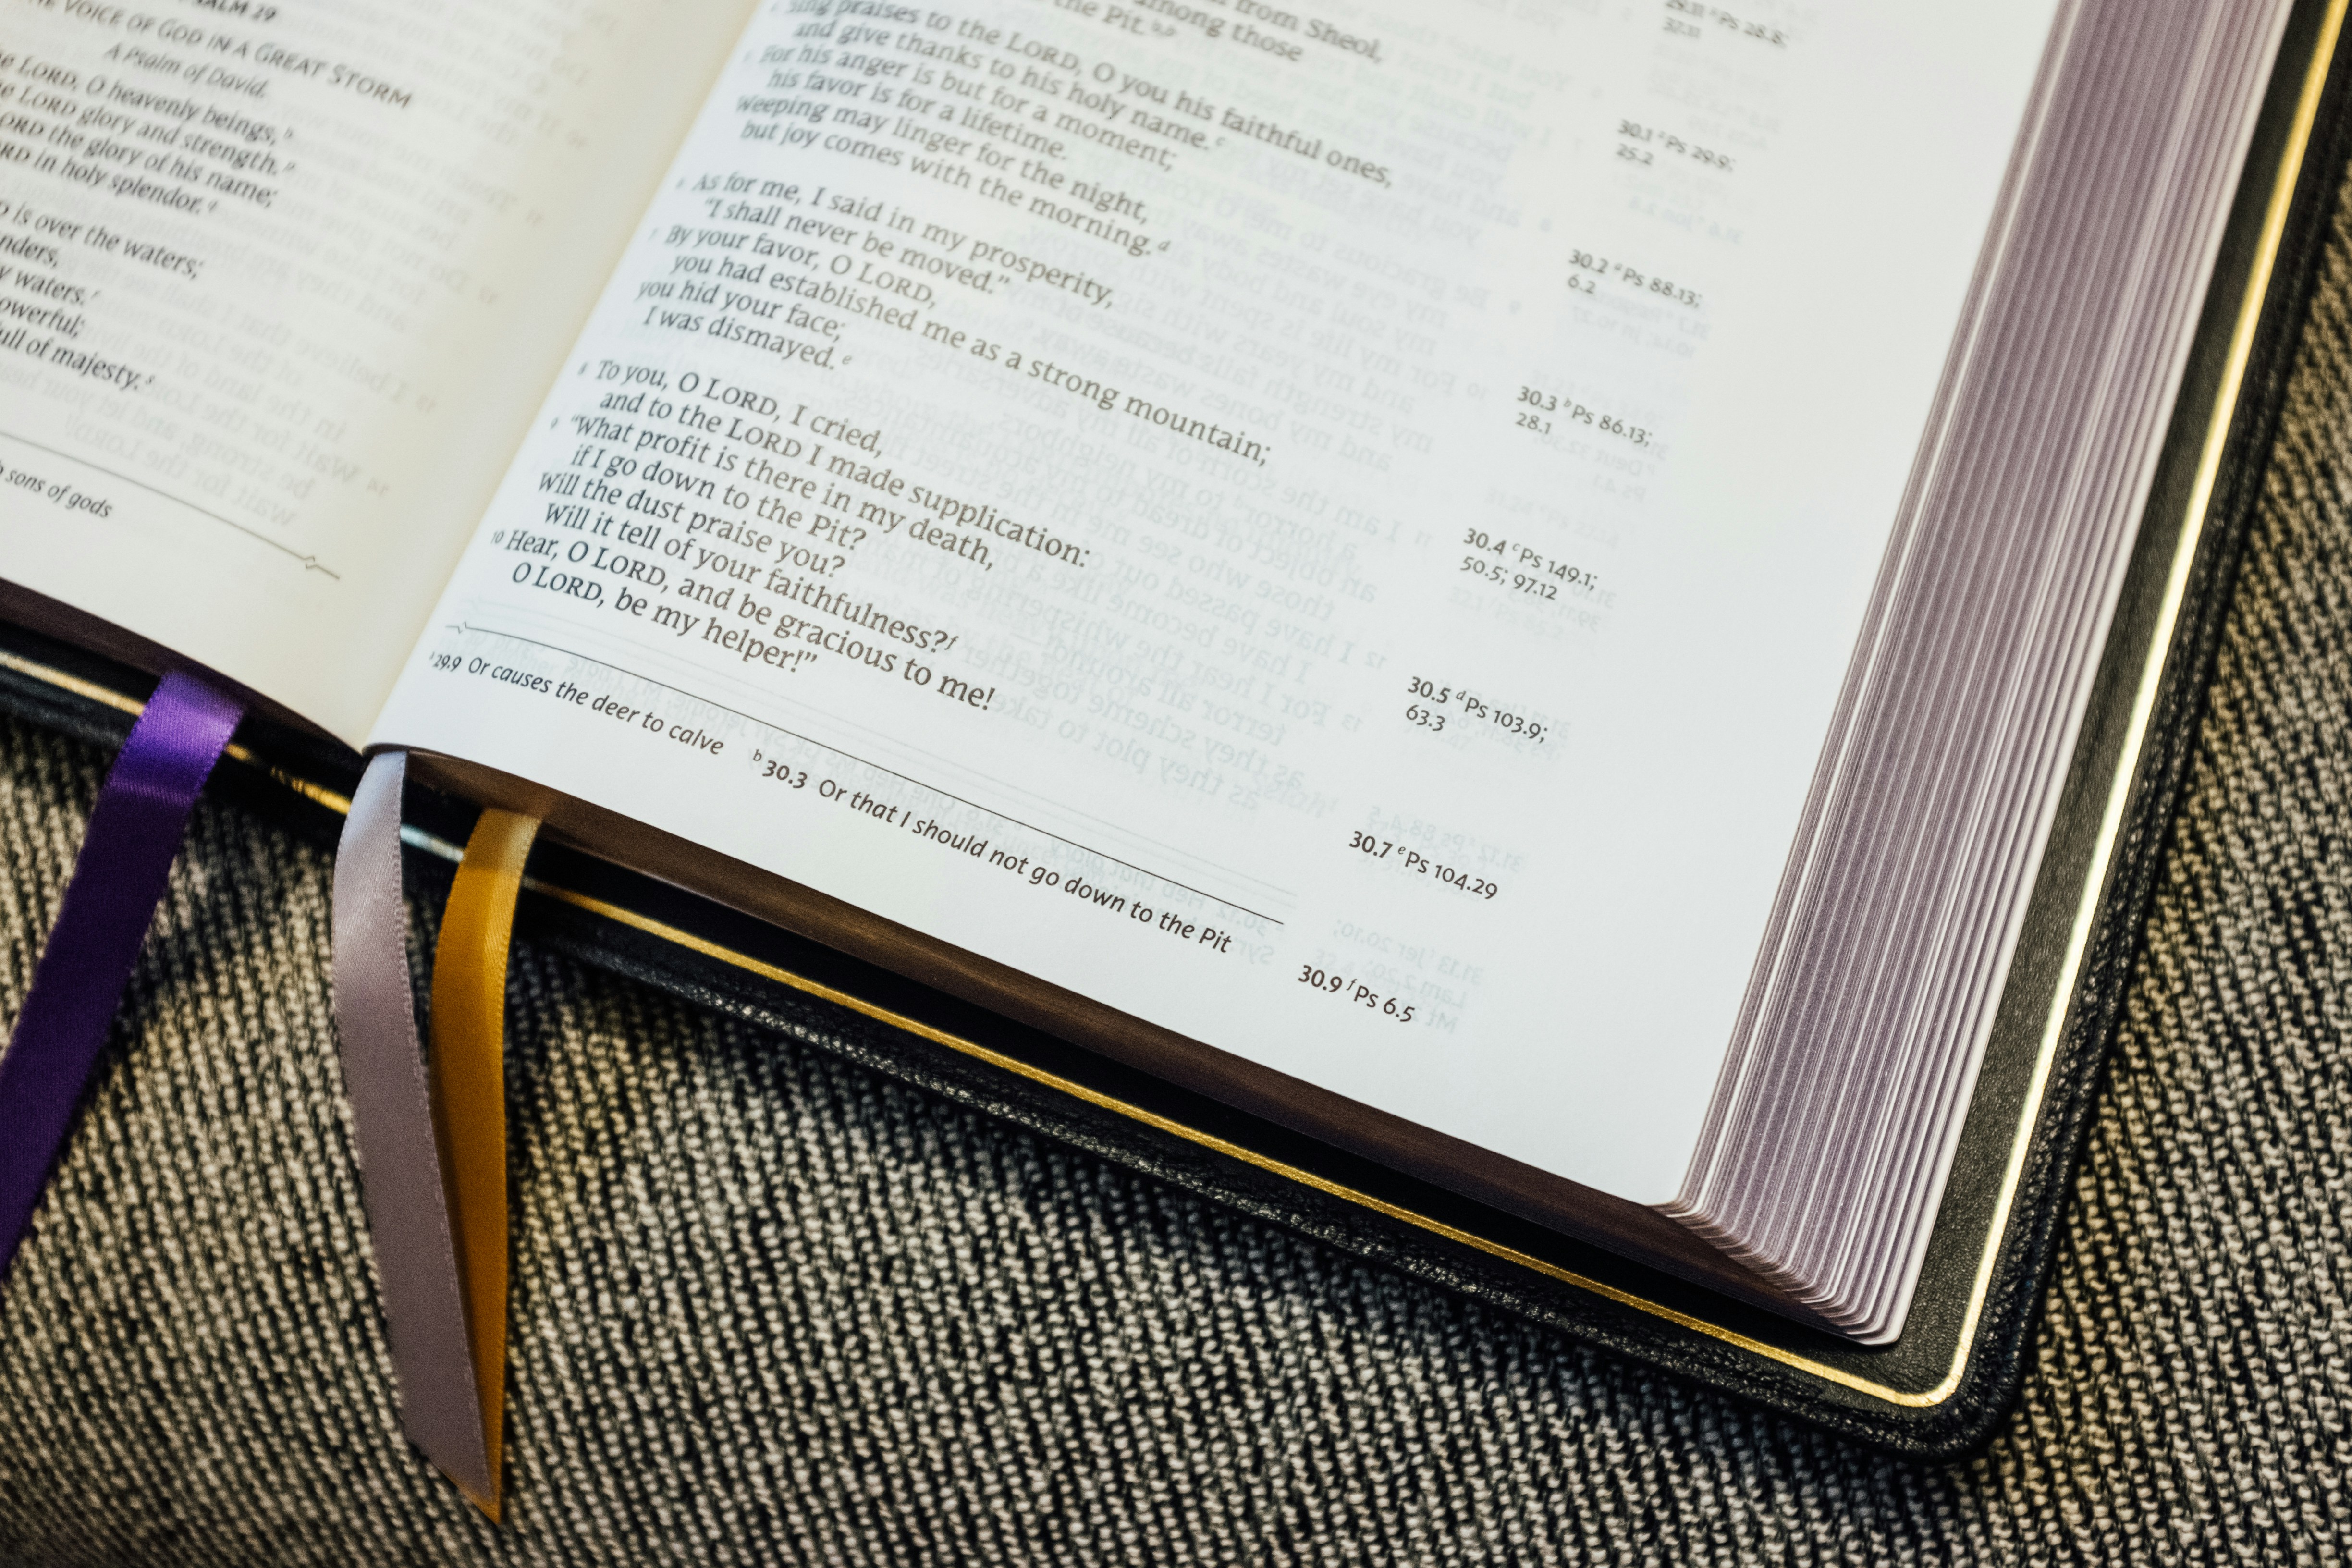 PSALM 29
THE VOICE OF GOD IN A GREAT STORM
A Psalm of David.
LORD, O heavenly beings,ᵇ
LORD glory and strength.ᵖ
LORD the glory of his name;
LORD in holy splendor.ᑫ
is over the waters;
waters.ʳ
full of majesty.ˢ
sons of gods
from Sheol,
among those
the Pit.ᵇ,ᵇ
Sing praises to the LORD, O you his faithful ones,
and give thanks to his holy name.ᶜ
For his anger is but for a moment;
his favor is for a lifetime.
Weeping may linger for the night,
but joy comes with the morning.ᵈ
6 As for me, I said in my prosperity,
"I shall never be moved."
7 By your favor, O LORD,
you had established me as a strong mountain;
you hid your face;
I was dismayed.ᵉ
8 To you, O LORD, I cried,
and to the LORD I made supplication:
9 "What profit is there in my death,
if I go down to the Pit?
Will the dust praise you?
Will it tell of your faithfulness?ᶠ
10 Hear, O LORD, and be gracious to me!
O LORD, be my helper!"
ᵃ 29.9 Or causes the deer to calve ᵇ 30.3 Or that I should not go down to the Pit
Ps 28.8;
30.1 ᶻPs 29.9;
25.2
30.2 ᵃPs 88.13;
6.2
30.3 ᵇPs 86.13;
28.1
30.4 ᶜPs 149.1;
50.5; 97.12
30.5 ᵈPs 103.9;
63.3
30.7 ᵉPs 104.29
30.9 ᶠPs 6.5